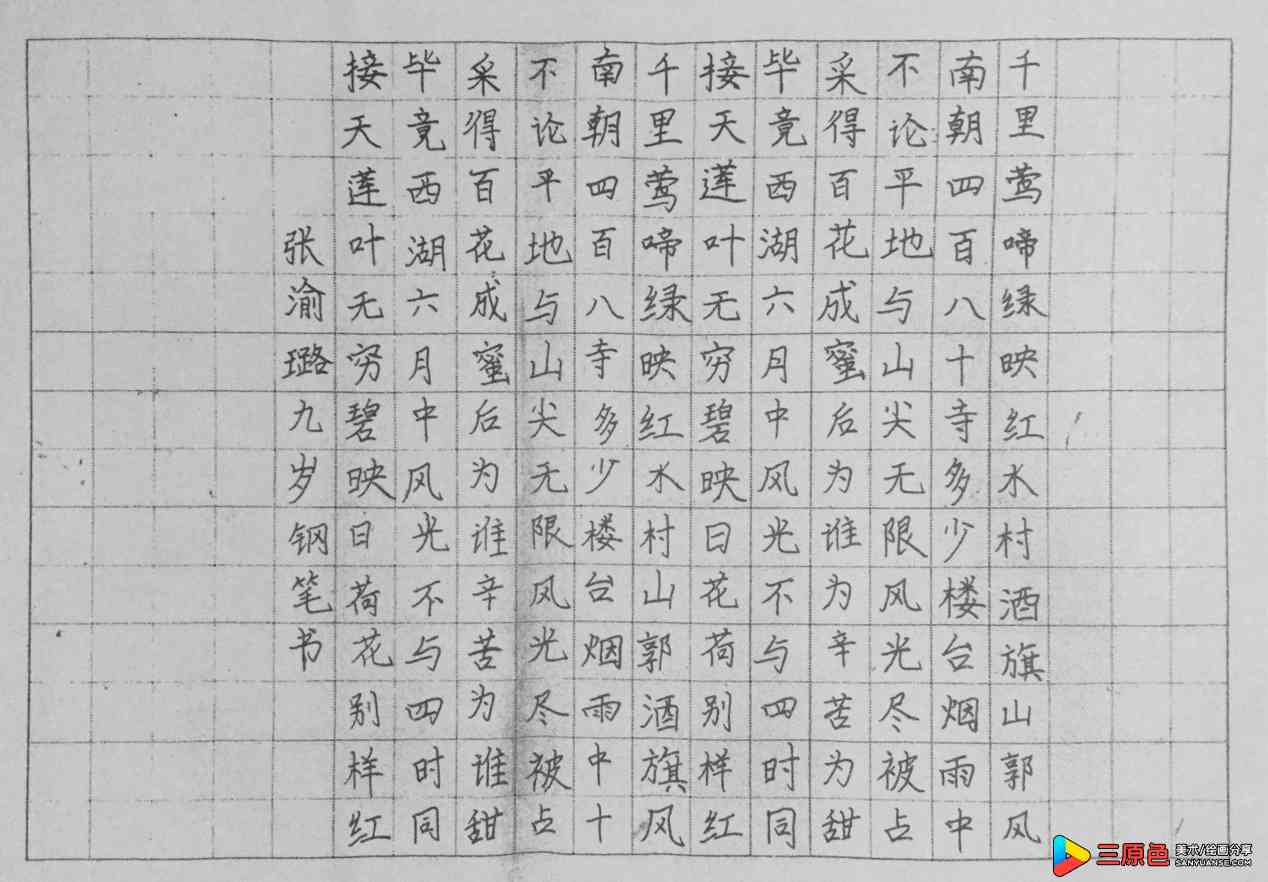 千里莺啼绿映红水村酒旗山郭风
南朝四百八十寺多少楼台烟雨中
不论平地与山尖无限风光尽被占
采得百花成蜜后为谁为辛苦为甜
毕竟西湖六月中风光不与四时同
接天莲叶无穷碧映日花荷别样红
千里莺啼绿映红水村山郭酒旗风
南朝四百八寺多少楼台烟雨中十
不论平地与山尖无限风光尽被占
采得百花成蜜后为谁辛苦为谁甜
毕竟西湖六月中风光不与四时同
接天莲叶无穷碧映日荷花别样红
张渝璐九岁钢笔书
三原色 美术/绘画分享
SANYUANSE.COM